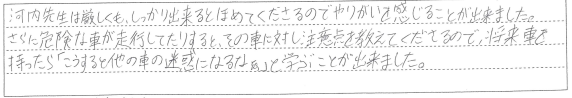 河内先生は厳しくも、しっかり出来るとほめてくださるのでやりがいを感じることが出来ました。
さらに危険な車が走行してたりすると、その車に対し注意点を教えてくださるので、将来車を
持ったら「こうすると他の車の迷惑になるなぁ」と学ぶことが出来ました。